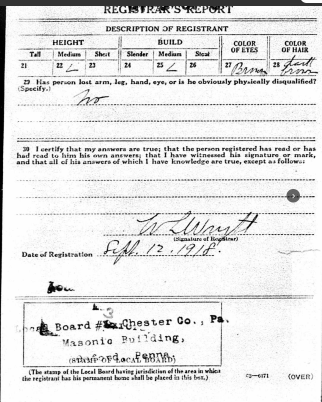 REGISTRAR'S REPORT
DESCRIPTION OF REGISTRANT
HEIGHT BUILD COLOR OF EYES COLOR OF HAIR
Tall Medium Short Slender Medium Stout
21 22 ✓ 23 24 25 ✓ 26 27 Brown 28 dark brown
29 Has person lost arm, leg, hand, eye, or is he obviously physically disqualified?
(Specify.)
No
30 I certify that my answers are true; that the person registered has read or has
had read to him his own answers; that I have witnessed his signature or mark,
and that all of his answers of which I have knowledge are true, except as follows:
(Signature of Registrar)
Date of Registration Sept. 12, 1918.
3
Local Board # Chester Co., Pa.
Masonic Building,
Penna.
(STAMP OF LOCAL BOARD)
(The stamp of the Local Board having jurisdiction of the area in which
the registrant has his permanent home shall be placed in this box.)
(OVER)